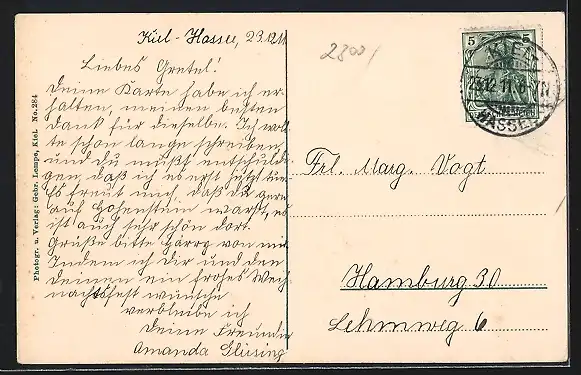 Kiel-Hassee, 23.12.11
Liebes Gretel!
Deine Karte habe ich er-
halten, meinen besten
Dank für dieselbe. Ich woll-
te schon lange schreiben
und du mußt entschuldi-
gen, daß ich es erst jetzt tue.
Es freut mich, daß du gern
auf Hohenstein warst, es
ist auch sehr schön dort.
Grüße bitte Harry von mir.
Indem ich dir und den
Deinen ein frohes Weih-
nachtsfest wünsche
verbleibe ich
deine Freundin
Amanda Glüsing
Photogr. u. Verlag: Gebr. Lempe, Kiel. No. 284
2800/
5 5
KIEL
23.12.11. 6-7N
HASSEE
Frl. Marg. Vogt.
Hamburg 30
Lehmweg 6